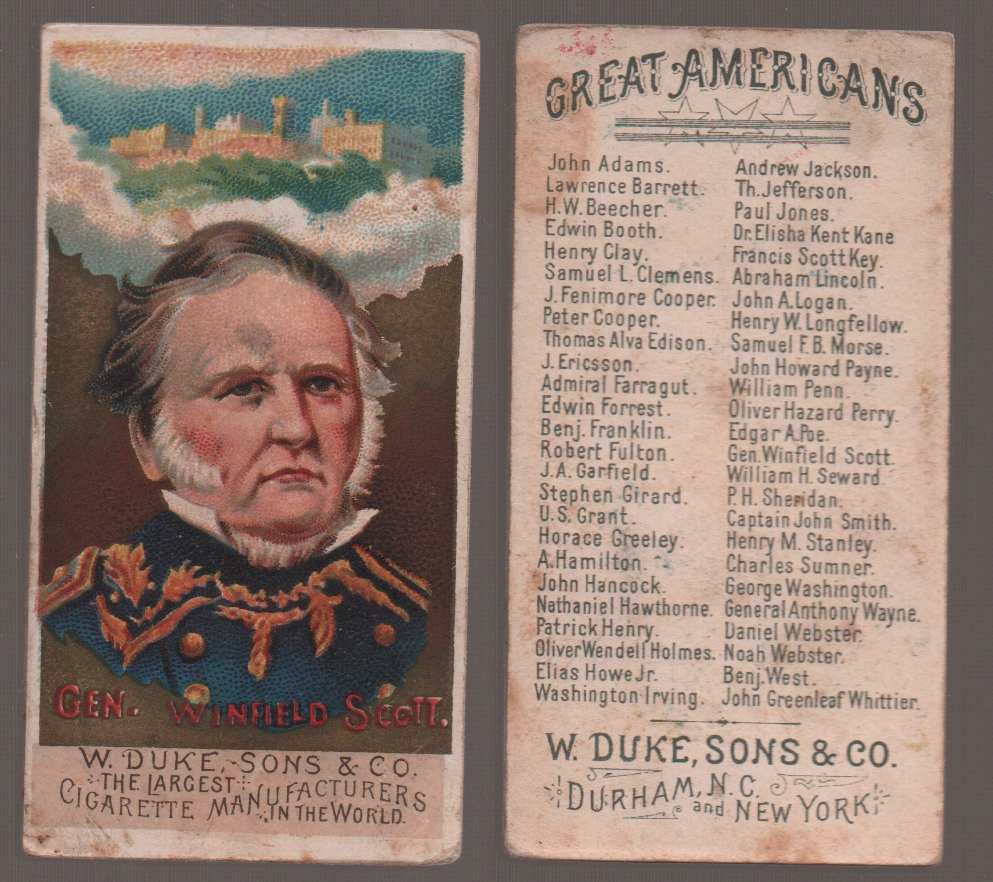 GEN. WINFIELD SCOTT.
W. DUKE, SONS & CO.
THE LARGEST
CIGARETTE MANUFACTURERS
IN THE WORLD.
GREAT AMERICANS
John Adams.
Lawrence Barrett.
H.W. Beecher.
Edwin Booth.
Henry Clay.
Samuel L. Clemens.
J. Fenimore Cooper.
Peter Cooper.
Thomas Alva Edison.
J. Ericsson.
Admiral Farragut.
Edwin Forrest.
Benj. Franklin.
Robert Fulton.
J.A. Garfield.
Stephen Girard.
U.S. Grant.
Horace Greeley.
A. Hamilton.
John Hancock.
Nathaniel Hawthorne.
Patrick Henry.
Oliver Wendell Holmes.
Elias Howe Jr.
Washington Irving.
Andrew Jackson.
Th. Jefferson.
Paul Jones.
Dr. Elisha Kent Kane
Francis Scott Key.
Abraham Lincoln.
John A. Logan.
Henry W. Longfellow.
Samuel F.B. Morse.
John Howard Payne.
William Penn.
Oliver Hazard Perry.
Edgar A. Poe.
Gen. Winfield Scott.
William H. Seward
P.H. Sheridan.
Captain John Smith.
Henry M. Stanley.
Charles Sumner.
George Washington.
General Anthony Wayne.
Daniel Webster.
Noah Webster.
Benj. West.
John Greenleaf Whittier.
W. DUKE, SONS & CO.
DURHAM, N.C.
and NEW YORK